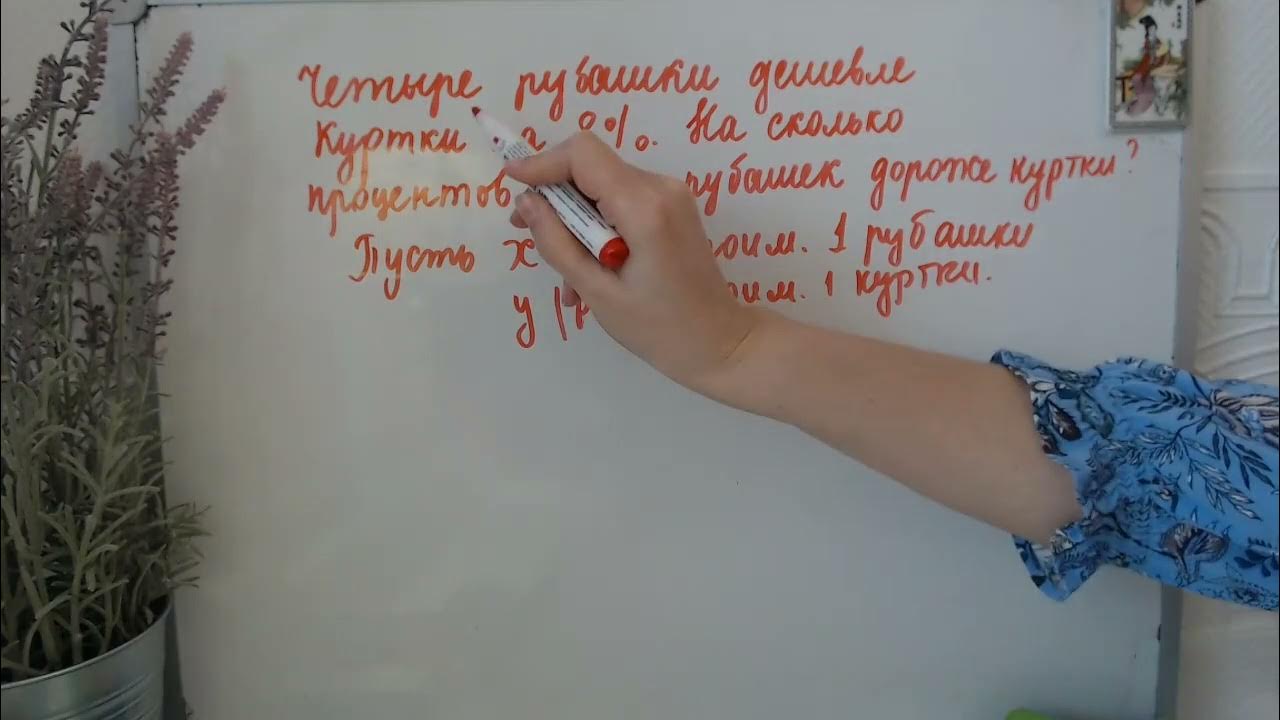 Четыре рубашки дешевле
куртки на 8%. На сколько
процентов рубашек дороже куртки?
Пусть х стоим. 1 рубашки
у стоим. 1 куртки.